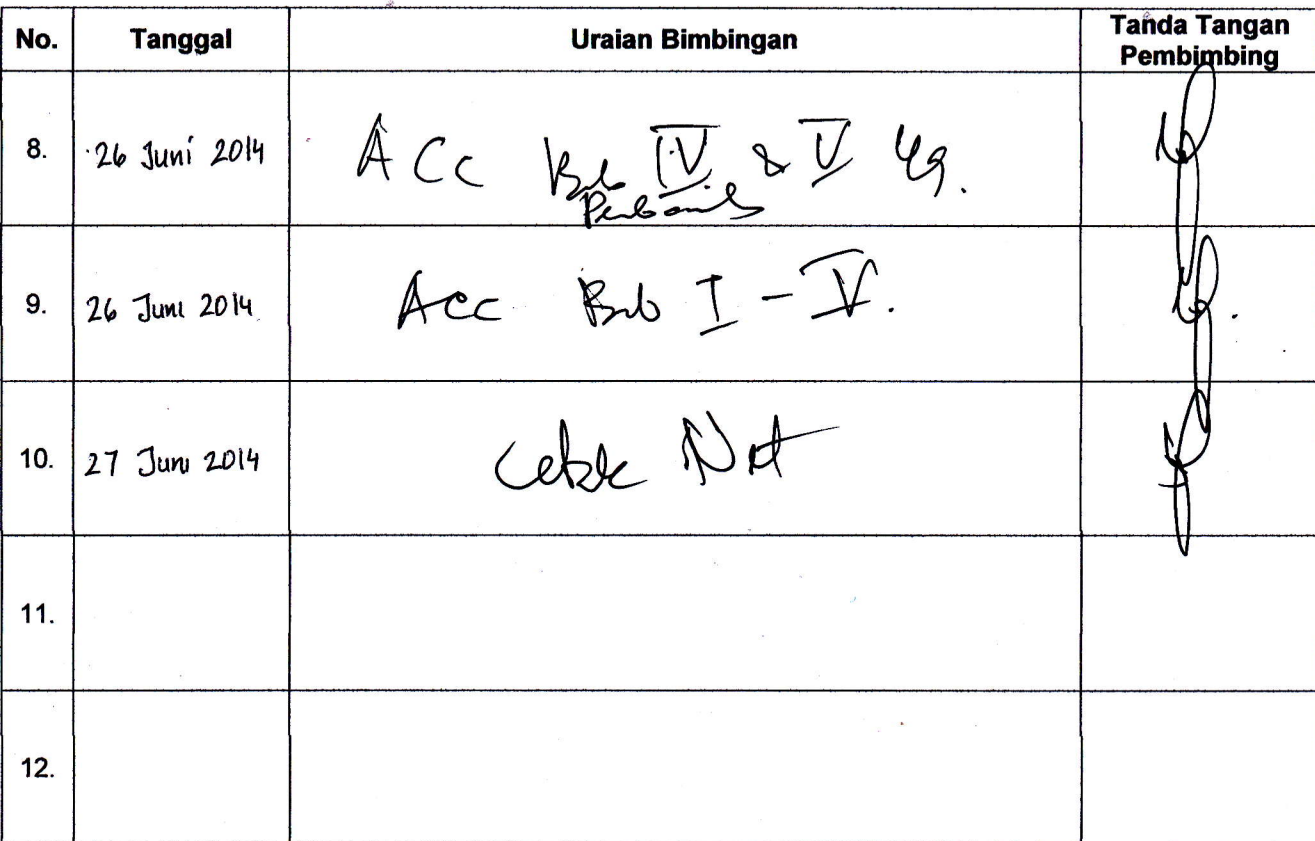 No. Tanggal Uraian Bimbingan Tanda Tangan
Pembimbing
8. 26 Juni 2014 Acc Bab IV & V
9. 26 Juni 2014 Acc Bab I - V.
10. 27 Juni 2014 Cetak
11.
12.